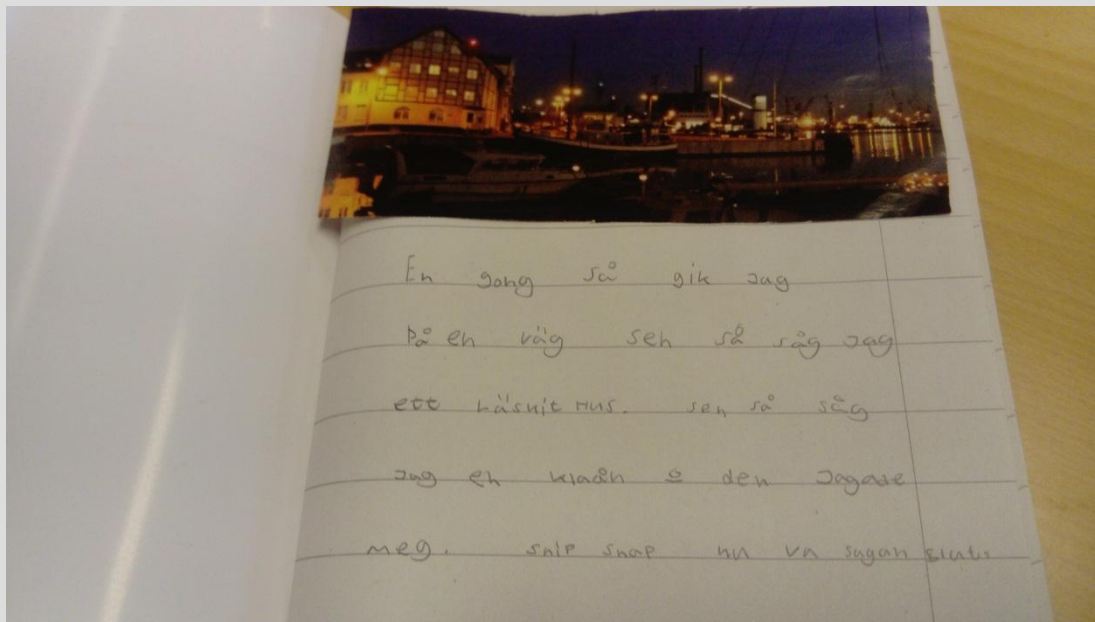 En gong så gik jag
på en väg sen så såg jag
ett läskit Hus. sen så såg
jag en klaån o den jagade
meg. snip snap nu va sagan slut.